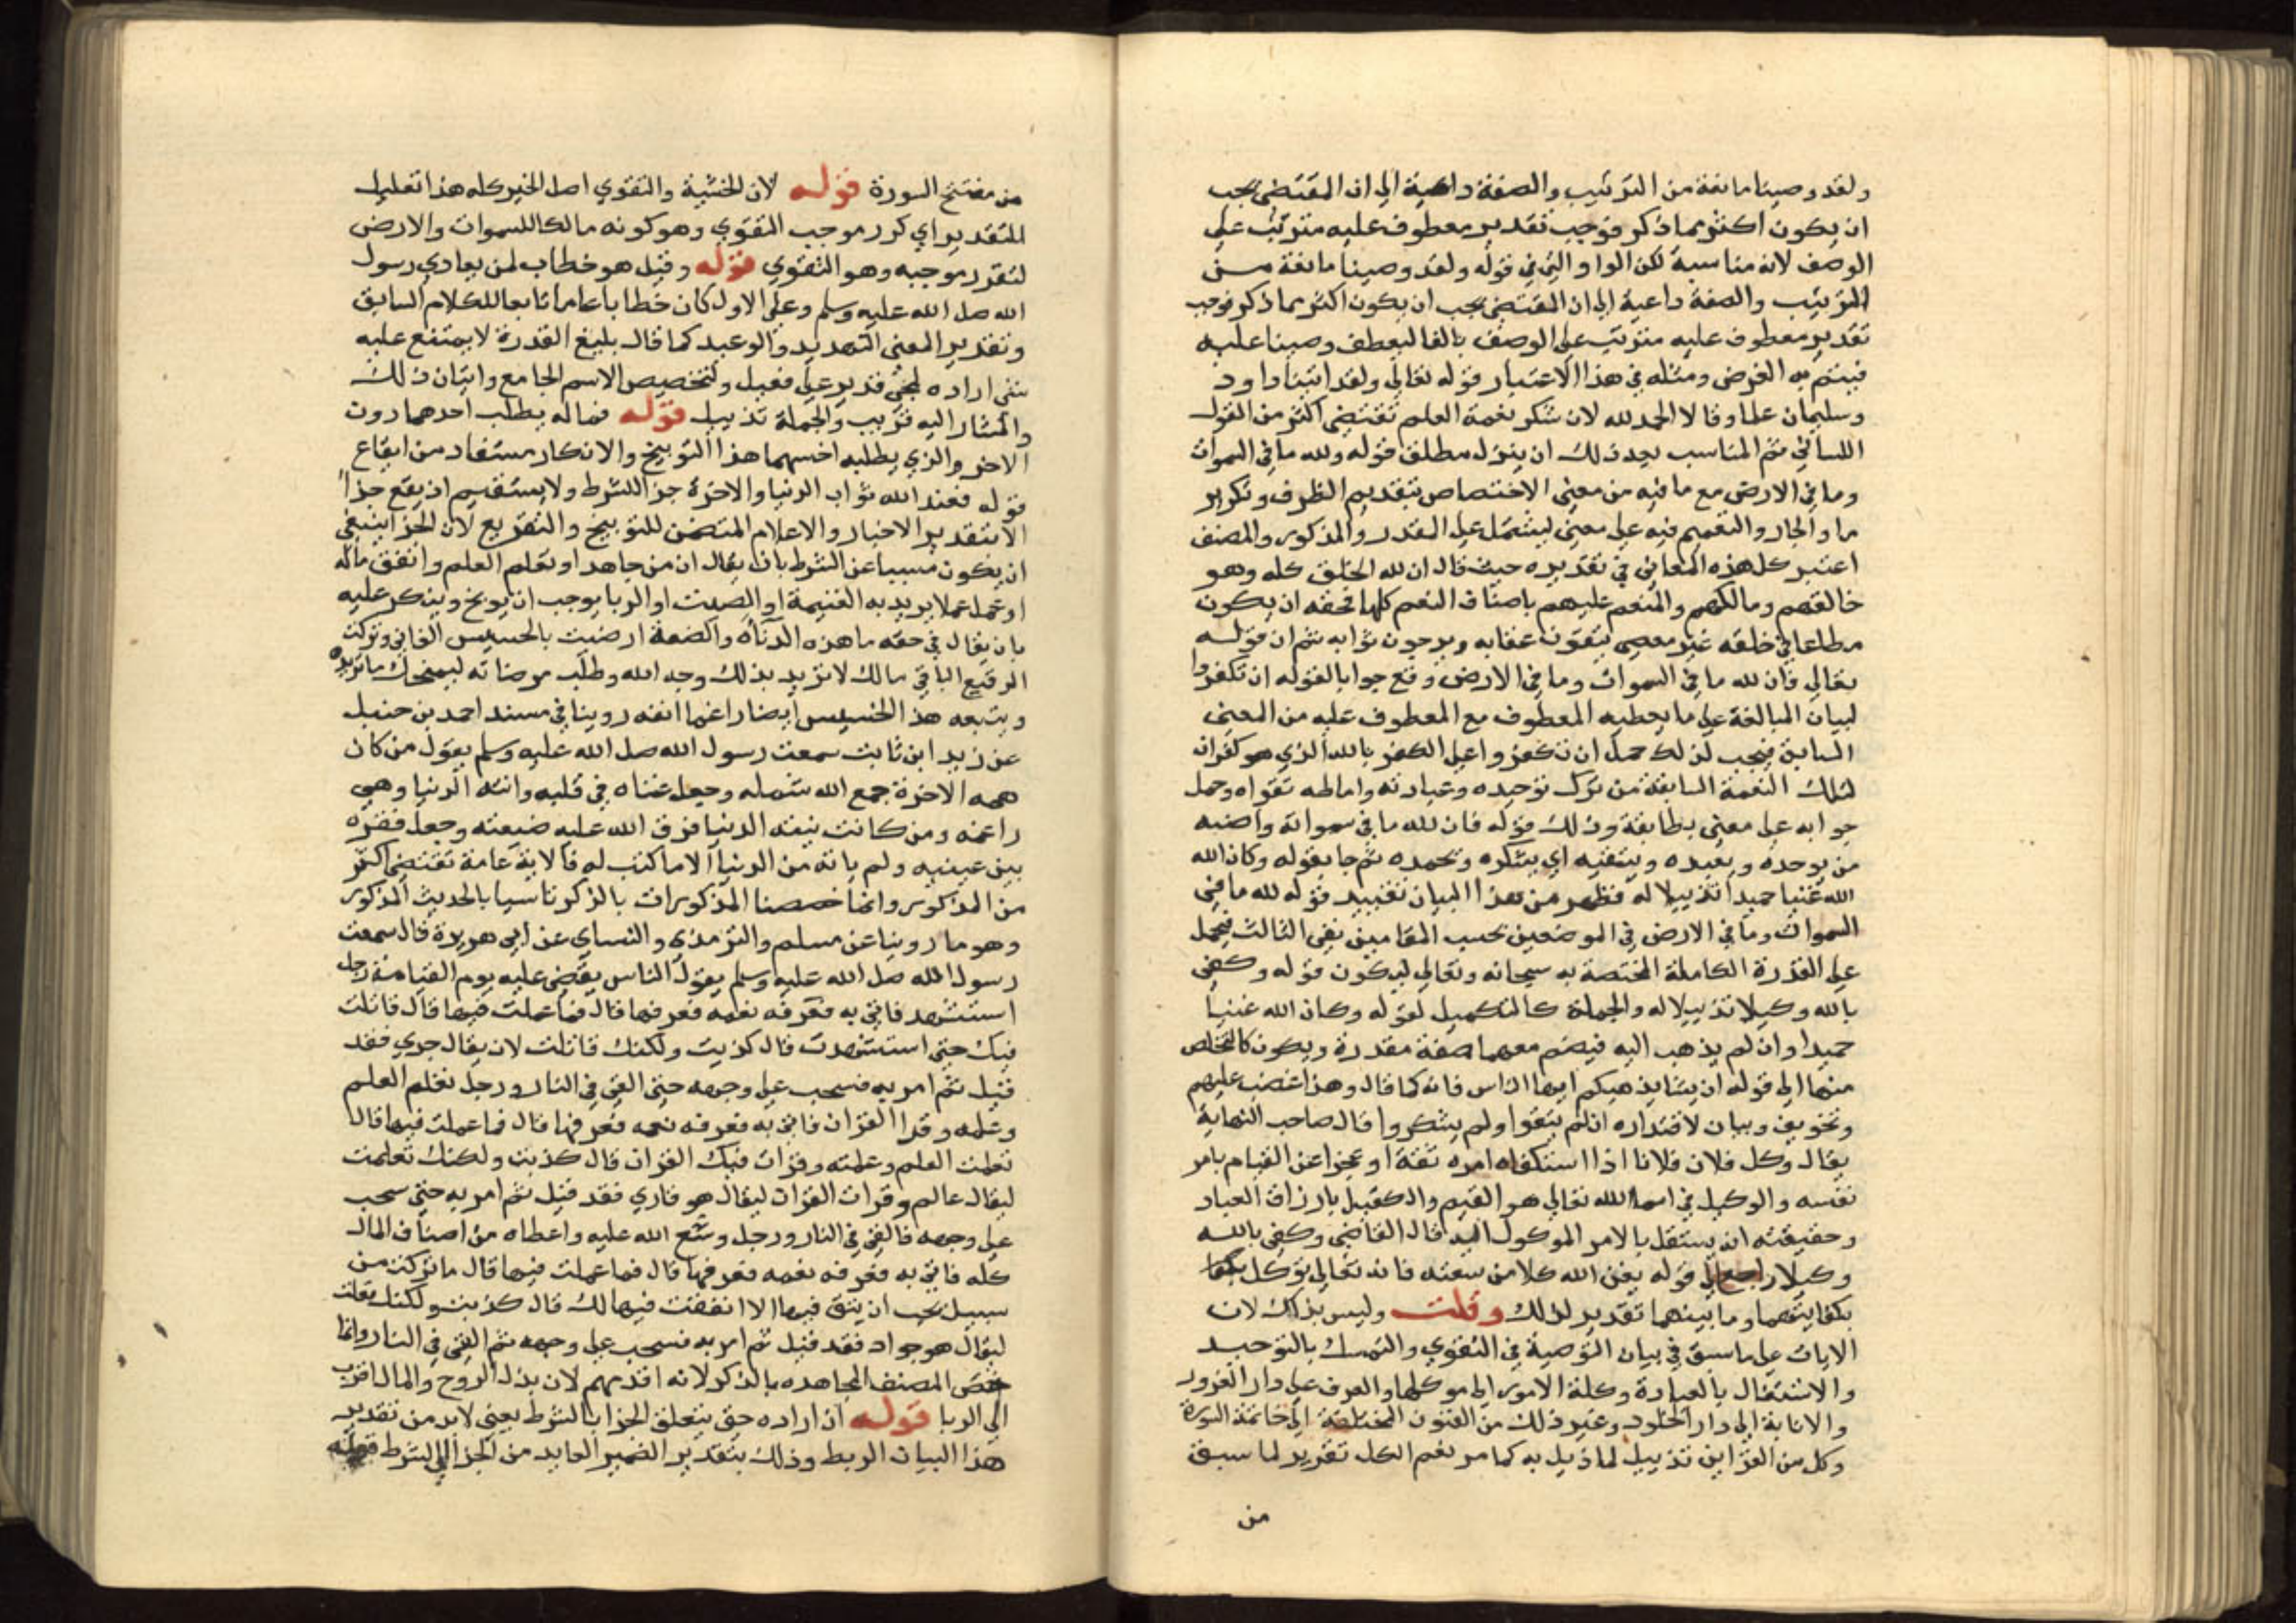 ولقد وصينا مانعة من الترتيب والصفة داعية الى ان المقتضى يجب
ان يكون اكثر مما ذكر فوجب تقدير معطوف عليه مترتب على
الوصف لانه مناسبة لكن الواو التي في قوله ولقد وصينا مانعة من
الترتيب والصفة داعية الى ان المقتضى يجب ان يكون اكثر مما ذكر فوجب
تقدير معطوف عليه مترتب على الوصف بالفا ليعطف وصينا عليه
فيتم به الغرض ومثله في هذا الاعتبار قوله تعالى ولقد اتينا داود
وسليمان علما وقالا الحمد لله لان شكر نعمة العلم تقتضي اكثر من القول
اللساني ثم المناسب بعد ذلك ان ينزل مطلق قوله ولله ما في السموات
وما في الارض مع ما فيه من معنى الاختصاص بتقديم الظرف وتكرير
ما والجار والتعميم فيه على معنى ليشتمل على المقدر والمذكور والمصنف
اعتبر كل هذه المعاني في تقديره حيث قال ان لله الخلق كله وهو
خالقهم ومالكهم والمنعم عليهم باصناف النعم كلها فحقه ان يكون
مطاعا في خلقه غير معصى يتقون عقابه ويرجون ثوابه ثم ان قوله
تعالى فان لله ما في السموات وما في الارض وقع جوابا لقوله ان تكفروا
لبيان المبالغة على ما يعطيه المعطوف مع المعطوف عليه من المعنى
السابق فيجب لذلك حمل ان تكفروا على الكفر بالله الذي هو كفران
لتلك النعمة السابقة من ترك توحيده وعبادته واماطه تقواه وحمل
جوابه على معنى يطابقه وذلك قوله فان لله ما في سمواته وارضه
من يوحده ويعبده ويتقيه اي يشكره ويحمده ثم جا بقوله وكان الله
الله غنيا حميدا تذييلا له فظهر من هذا البيان تقييد قوله لله ما في
السموات وما في الارض في الموضعين بحسب المقامين بقي الثالث فيحمل
على القدرة الكاملة المختصة به سبحانه وتعالى ليكون قوله وكفى
بالله وكيلا تذييلا له والجملة كالتكميل لقوله وكان الله غنيا
حميدا وان لم يذهب اليه فيضم معهما صفة مقدرة ويكون كالتخلص
منها الى قوله ان يشا يذهبكم ايها الناس فانه كما قال وهذا غضب عليهم
وتخويف وبيان لاقتداره ان لم يتقوا ولم يشكروا قال صاحب النهاية
يقال وكل فلان فلانا اذا استكفاه امره ثقة او عجزا عن القيام بامر
نفسه والوكيل في اسما الله تعالى هو القيم والكفيل بارزاق العباد
وحقيقته انه يستقل بالامر الموكول اليه قال القاضي وكفى بالله
وكيلا راجع الى قوله يغن الله كلا من سعته فانه تعالى توكل
بكفايتهما وما بينهما تقدير لذلك وقلت وليس بذاك لان
الايات على ما سبق في بيان التوصية في التقوى والتمسك بالتوحيد
والاشتغال بالعبادة وكلة الامور الى موكلها والعرف على دار الغرور
والانابة الى دار الخلود وغير ذلك من الفنون المختلطة الى خاتمة السورة
وكل من القراين تذييل لما ذيل به كما مر نعم الكل تقرير لما سبق
من
من مفتتح السورة قوله لان الخشية والتقوى اصل الخير كله هذا تعليل
للتقدير اي كرر موجب التقوى وهو كونه مالكا للسموات والارض
لتقرر موجبه وهو التقوى قوله وقيل هو خطاب لمن يعادي رسول
الله صلى الله عليه وسلم وعلى الاول كان خطابا عاما تابعا للكلام السابق
وتقدير المعنى التهديد والوعيد كما قال بليغ القدرة لا يمتنع عليه
شي اراده لمجى قدير على فعيل ولتخصيص الاسم الجامع واتيان ذلك
والمشار اليه قريب والجملة تذييل قوله فماله يطلب احدهما دون
الاخر والذي يطلبه اخسهما هذا التوبيخ والانكار مستفاد من ايقاع
قوله فعند الله ثواب الدنيا والاخرة جزا للشرط ولا يستقيم ان يقع جزا
الا بتقدير الاخبار والاعلام المتضمن للتوبيخ والتقريع لان الجزا ينبغي
ان يكون مسببا عن الشرط بان يقال ان من جاهد او تعلم العلم وانفق ماله
او عمل عملا يريد به الغنيمة او الصيت او الريا يوجب ان يوبخ وينكر عليه
بان يقال في حقه ما هذه الدناة والضعة ارضيت بالخسيس الفاني وتركت
الرفيع الباقي مالك لا تريد بذلك وجه الله وطلب مرضاته ليمنحك ما تريده
ويتبعه هذا الخسيس ايضا راغما انفه روينا في مسند احمد بن حنبل
عن زيد ابن ثابت سمعت رسول الله صلى الله عليه وسلم يقول من كان
همه الاخرة جمع الله شمله وجعل غناه في قلبه واتته الدنيا وهي
راغمه ومن كانت نيته الدنيا فرق الله عليه ضيعته وجعل فقره
بين عينيه ولم ياته من الدنيا الا ما كتب له فالاية عامة تقتضي اكثر
من المذكور وانما خصصنا المذكورات بالذكر تاسيا بالحديث المذكور
وهو ما روينا عن مسلم والترمذي والنساي عن ابي هريرة قال سمعت
رسول الله صلى الله عليه وسلم يقول الناس يقضى عليه يوم القيامة رجل
استشهد فاتى به فعرفه نعمه فعرفها قال فما عملت فيها قال قاتلت
فيك حتى استشهدت قال كذبت ولكنك قاتلت لان يقال جري فقد
قيل ثم امر به فسحب على وجهه حتى القي في النار ورجل تعلم العلم
وعلمه وقرا القران فاتى به فعرفه نعمه فعرفها قال فما عملت فيها قال
تعلمت العلم وعلمته وقرات فيك القران قال كذبت ولكنك تعلمت
ليقال عالم وقرات القران ليقال هو قاري فقد قيل ثم امر به حتى سحب
على وجهه فالقي في النار ورجل وسع الله عليه واعطاه من اصناف المال
كله فاتى به فعرفه نعمه فعرفها قال فما عملت فيها قال ما تركت من
سبيل تحب ان ينفق فيها الا انفقت فيها لك قال كذبت ولكنك فعلت
ليقال هو جواد فقد قيل ثم امر به فسحب على وجهه ثم القي في النار وانما
خص المصنف المجاهده بالذكر لانه اقدمهم لان بذل الروح والمال اقرب
الى الريا قوله ان اراده حتى يتعلق الجزا بالشرط يعني لابد من تقدير
هذا البيان الربط وذلك بتقدير الضمير العايد من الجزا الى الشرط قوله